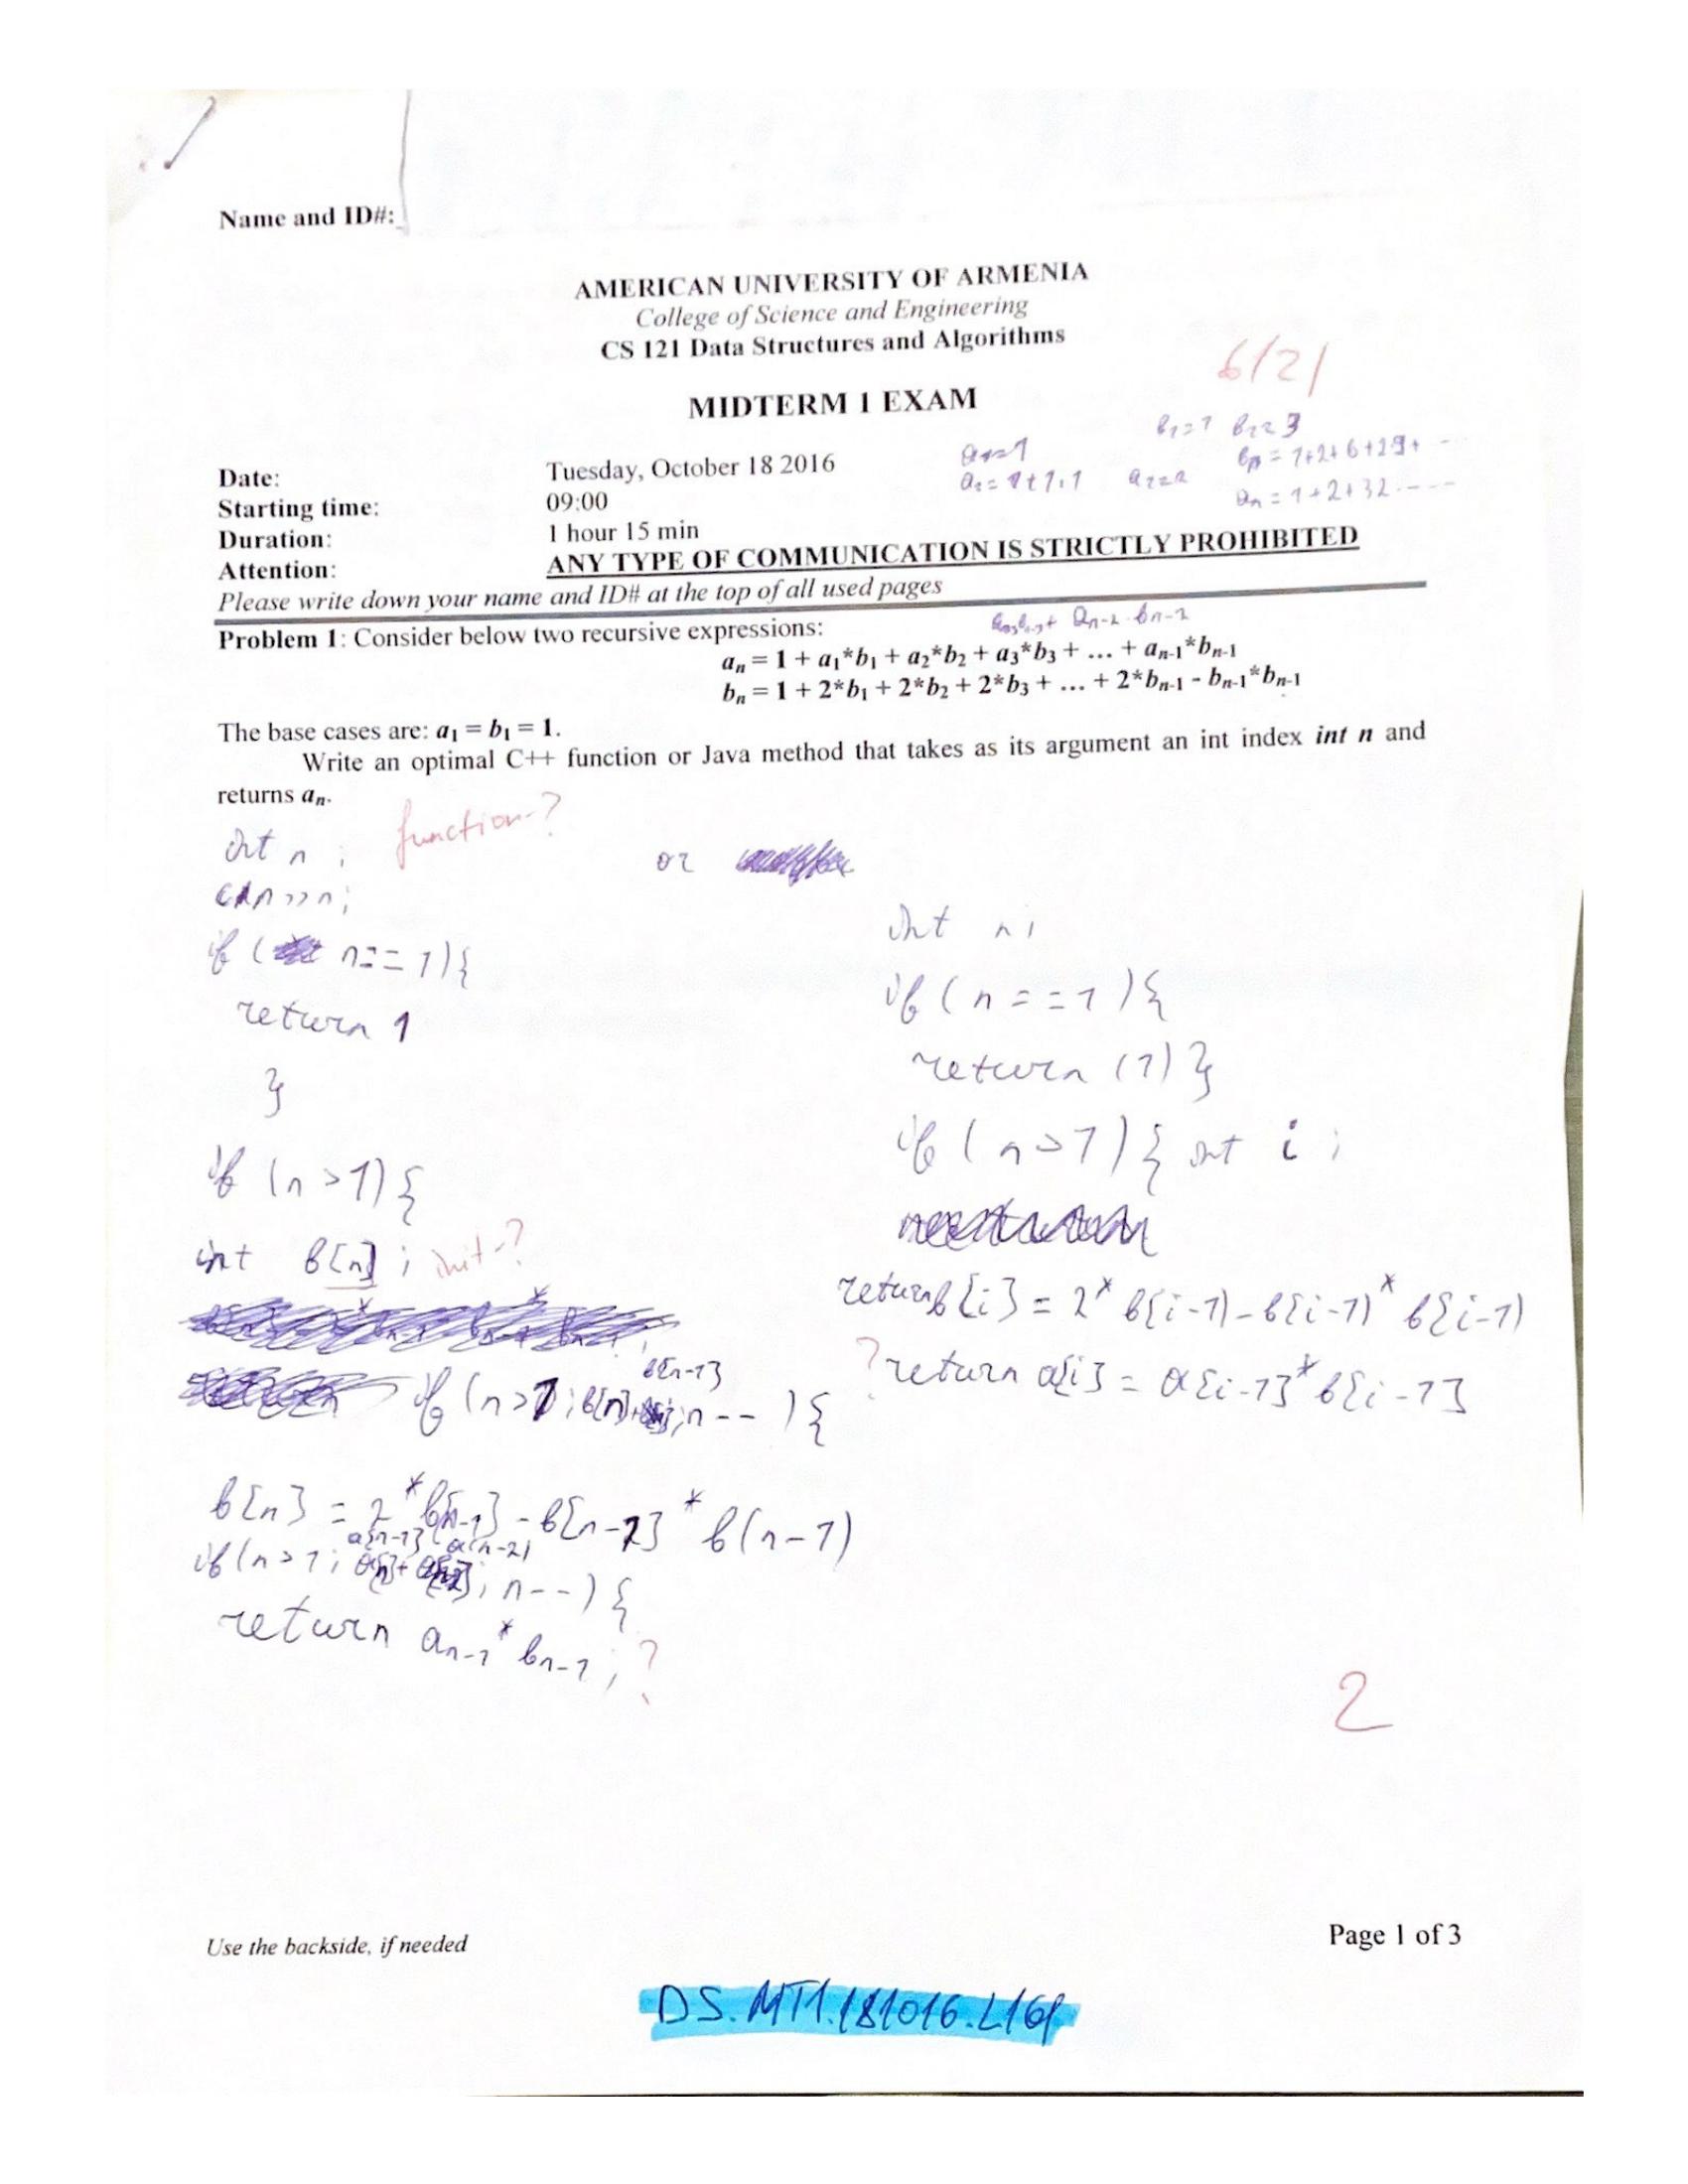 Name and ID#:
AMERICAN UNIVERSITY OF ARMENIA
College of Science and Engineering
CS 121 Data Structures and Algorithms
6/21
MIDTERM 1 EXAM
b1=1 b2=3
a1=1
bn = 1+2+6+29+ ...
a2 = 1+1.1 a2=2
an = 1+2+32.....
Date: Tuesday, October 18 2016
Starting time: 09:00
Duration: 1 hour 15 min
Attention: ANY TYPE OF COMMUNICATION IS STRICTLY PROHIBITED
Please write down your name and ID# at the top of all used pages
Problem 1: Consider below two recursive expressions:
an-2 . bn-2
an = 1 + a1*b1 + a2*b2 + a3*b3 + ... + an-1*bn-1
bn = 1 + 2*b1 + 2*b2 + 2*b3 + ... + 2*bn-1 - bn-1*bn-1
The base cases are: a1 = b1 = 1.
Write an optimal C++ function or Java method that takes as its argument an int index int n and
returns an.
function-?
int n ;
cin >> n;
if ( n == 1){
return 1
}
if (n > 1) {
int b[n] ; init-?
b[n-1]
if (n > 1 ; b[n] ; n-- ) {
b[n] = 2 * b[n-1] - b[n-1] * b(n-1)
a[n-1] a(n-2)
if (n > 1 ; ; n--) {
return an-1 * bn-1 ; ?
or
int n ;
if ( n == 1 ) {
return (1) }
if ( n > 1 ) { int i ;
return b[i] = 2 * b[i-1) - b[i-1) * b[i-1)
? return a[i] = a[i-1] * b[i-1]
2
Use the backside, if needed
Page 1 of 3
DS.MT1.181016.L161